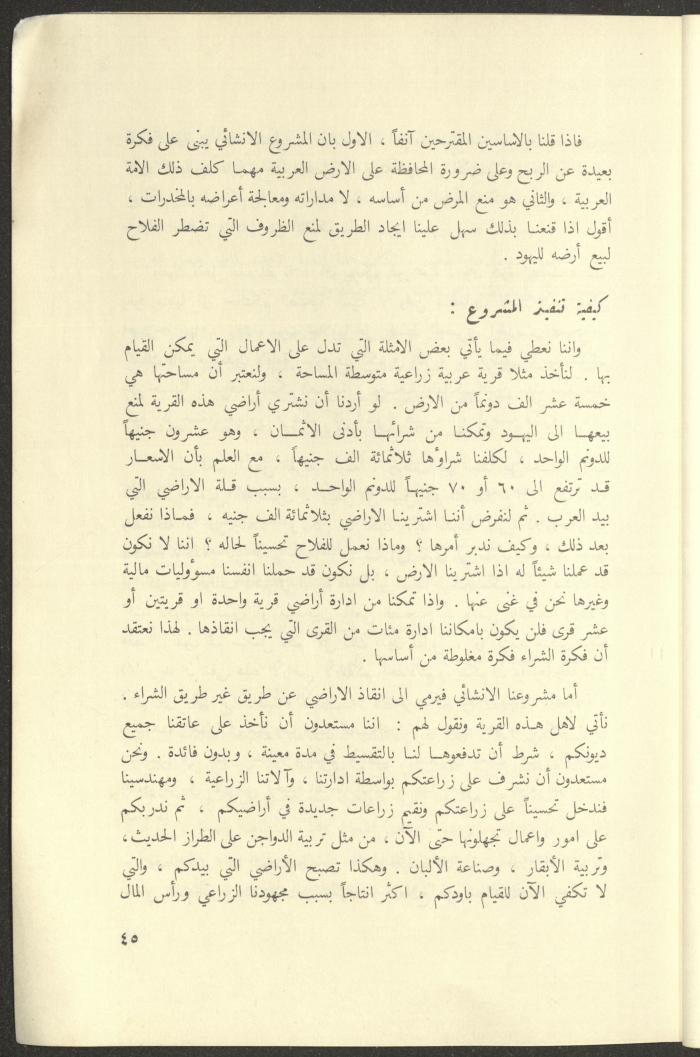 فاذا قلنا بالاساسين المقترحين آنفاً ، الاول بان المشروع الانشائي يبنى على فكرة
بعيدة عن الربح وعلى ضرورة المحافظة على الارض العربية مهما كلف ذلك الامة
العربية ، والثاني هو منع المرض من أساسه ، لا مداراته ومعالجة أعراضه بالمخدرات ،
أقول اذا قنعنا بذلك سهل علينا ايجاد الطريق لمنع الظروف التي تضطر الفلاح
لبيع أرضه لليهود .
كيفية تنفيذ المشروع :
واننا نعطي فيما يأتي بعض الامثلة التي تدل على الاعمال التي يمكن القيام
بها . لنأخذ مثلا قرية عربية زراعية متوسطة المساحة ، ولنعتبر أن مساحتها هي
خمسة عشر الف دونماً من الارض . لو أردنا أن نشتري أراضي هذه القرية لمنع
بيعها الى اليهود وتمكنا من شرائها بأدنى الاثمان ، وهو عشرون جنيهاً
للدونم الواحد ، لكلفنا شراؤها ثلاثمائة الف جنيهاً ، مع العلم بأن الاسعار
قد ترتفع الى ٦٠ أو ٧٠ جنيهاً للدونم الواحد ، بسبب قلة الاراضي التي
بيد العرب . ثم لنفرض أننا اشترينا الاراضي بثلاثمائة الف جنيه ، فماذا نفعل
بعد ذلك ، وكيف ندبر أمرها ؟ وماذا نعمل للفلاح تحسيناً لحاله ؟ اننا لا نكون
قد عملنا شيئاً له اذا اشترينا الارض ، بل نكون قد حملنا انفسنا مسؤوليات مالية
وغيرها نحن في غنى عنها . واذا تمكنا من ادارة أراضي قرية واحدة او قريتين أو
عشر قرى فلن يكون بامكاننا ادارة مئات من القرى التي يجب انقاذها . لهذا نعتقد
أن فكرة الشراء فكرة مغلوطة من أساسها .
أما مشروعنا الانشائي فيرمي الى انقاذ الاراضي عن طريق غير طريق الشراء .
نأتي لاهل هذه القرية ونقول لهم : اننا مستعدون أن نأخذ على عاتقنا جميع
ديونكم ، شرط أن تدفعوها لنا بالتقسيط في مدة معينة ، وبدون فائدة . ونحن
مستعدون أن نشرف على زراعتكم بواسطة ادارتنا ، وآلاتنا الزراعية ، ومهندسينا
فندخل تحسيناً على زراعتكم ونقيم زراعات جديدة في أراضيكم ، ثم ندربكم
على امور واعمال تجهلونها حتى الآن ، من مثل تربية الدواجن على الطراز الحديث ،
وتربية الأبقار ، وصناعة الألبان . وهكذا تصبح الأراضي التي بيدكم ، والتي
لا تكفي الآن للقيام باودكم ، اكثر انتاجاً بسبب مجهودنا الزراعي ورأس المال
٤٥